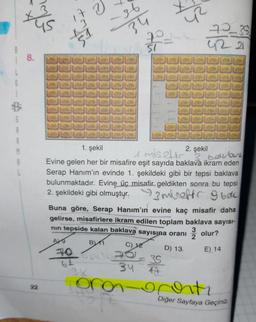 3
45
17
3
51
36
34
42
70
51
=
72
42
35
21
8.
1. şekil
2. şekil
1 misafir
Evine gelen her bir misafire eşit sayıda baklava ikram eden
Serap Hanım'ın evinde 1. şekildeki gibi bir tepsi baklava
bulunmaktadır. Evine üç misafir geldikten sonra bu tepsi
2. şekildeki gibi olmuştur.
3 misafir 9 bak
Buna göre, Serap Hanım'ın evine kaç misafir daha
gelirse, misafirlere ikram edilen toplam baklava sayısı-
nın tepside kalan baklava sayısına oranı 3/2 olur?
A) 9
B) 11
C) 12
D) 13
E) 14
70
51
70
34
=
35
17
22
oran-orantı
Diğer Sayfaya Geçiniz.